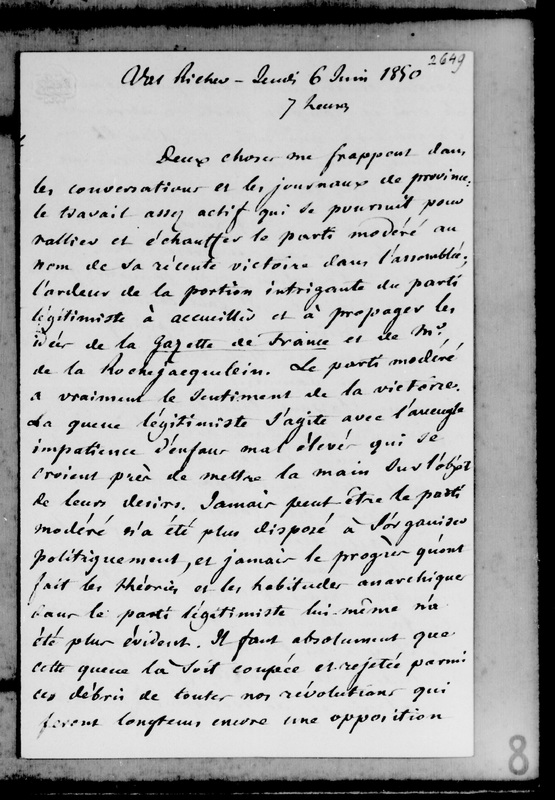 2649
Val Richer – Jeudi 6 Juin 1850
7 heures
Deux choses me frappent dans
les conversations et les journaux de province:
le travail assez actif qui se poursuit pour
rallier et échauffer le parti modéré au
nom de sa récente victoire dans l'assemblée;
l'ardeur de la portion intrigante du parti
légitimiste à accueillir et à propager les
idées de la Gazette de France et de Mr.
de la Rochejacquelein. Le parti modéré
a vraiment le sentiment de la victoire.
La queue légitimiste s'agite avec l'aveugle
impatience d'enfans mal élevés qui se
croient près de mettre la main sur l'objet
de leurs desirs. Jamais peut être le parti
modéré n'a été plus disposé à s'organiser
politiquement, et jamais le progrès qu'ont
fait les théories et les habitudes anarchiques
dans le parti légitimiste lui même n'a
été plus évident. Il faut absolument que
cette queue là soit coupée et rejetée parmi
ces débris de toutes nos révolutions qui
feront longtems encore une opposition
8